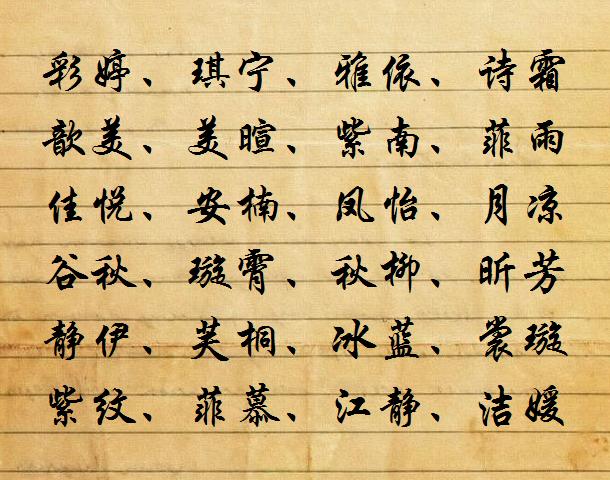 彩婷、琪宁、雅依、诗霜
歆美、美暄、紫南、菲雨
佳悦、安楠、凤怡、月凉
谷秋、璇霄、秋柳、昕芳
静伊、芙桐、冰蓝、裳璇
紫纹、菲慕、江静、洁媛